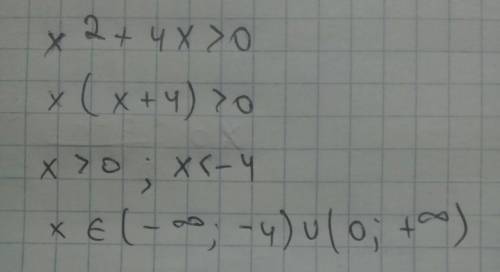 x² + 4x > 0
x(x+4) > 0
x > 0 ; x < -4
x ∈ (-∞; -4) ∪ (0; +∞)